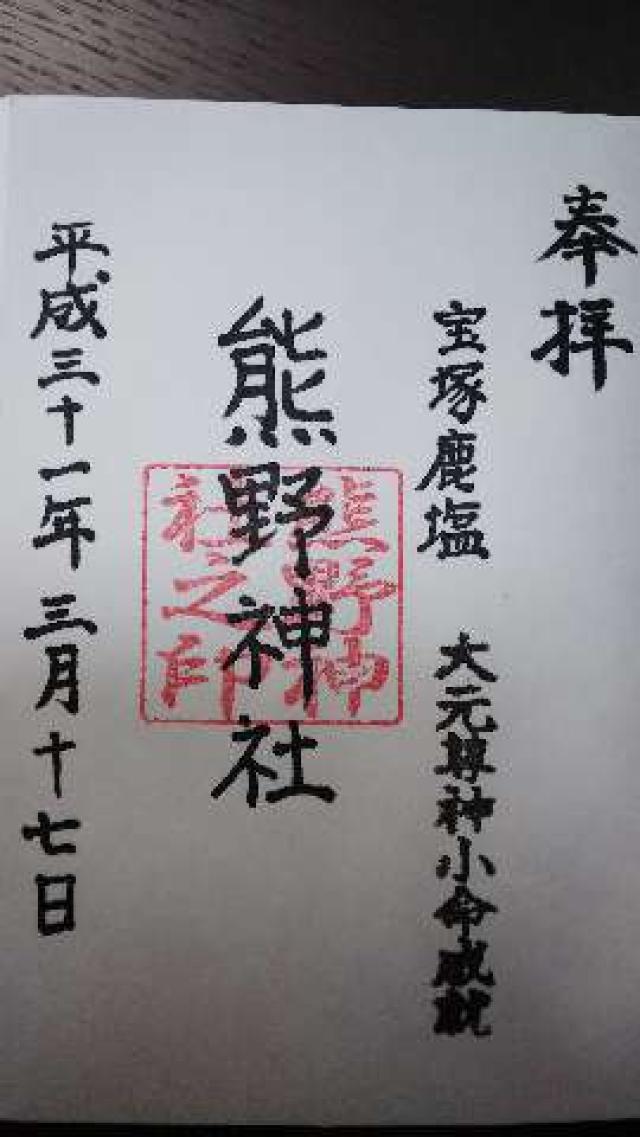 奉拝
宝塚鹿塩 大元尊神小命成就
熊野神社
熊野神
社之印
平成三十一年三月十七日